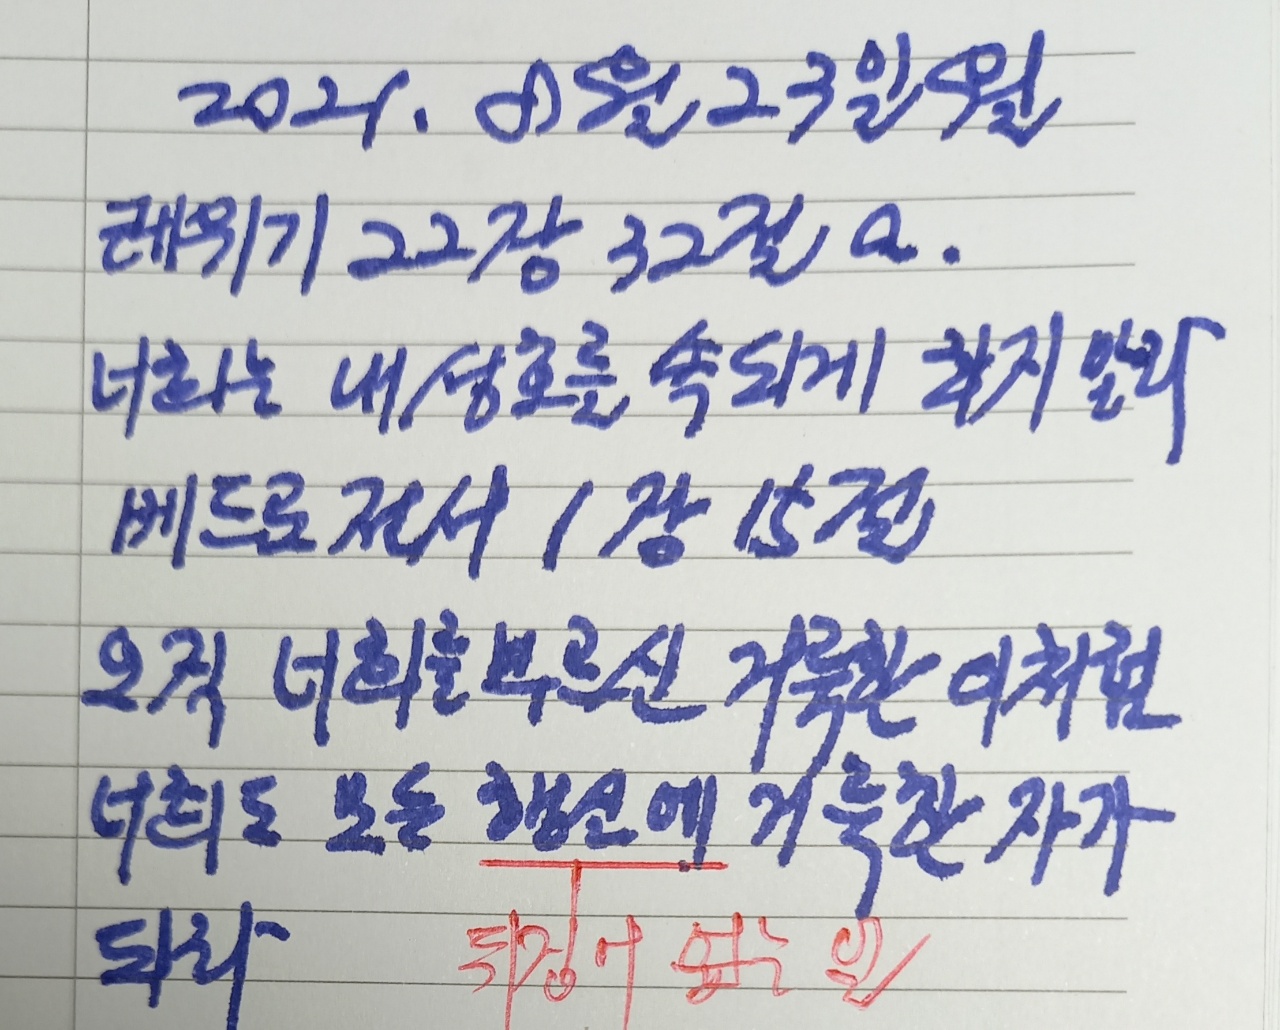 2021. 8월 23일 월
레위기 22장 32절 a.
너희는 내 성호를 속되게 하지 말라
베드로전서 1장 15절
오직 너희를 부르신 거룩한 이처럼
너희도 모든 행실에 거룩한 자가
되라
없는 일